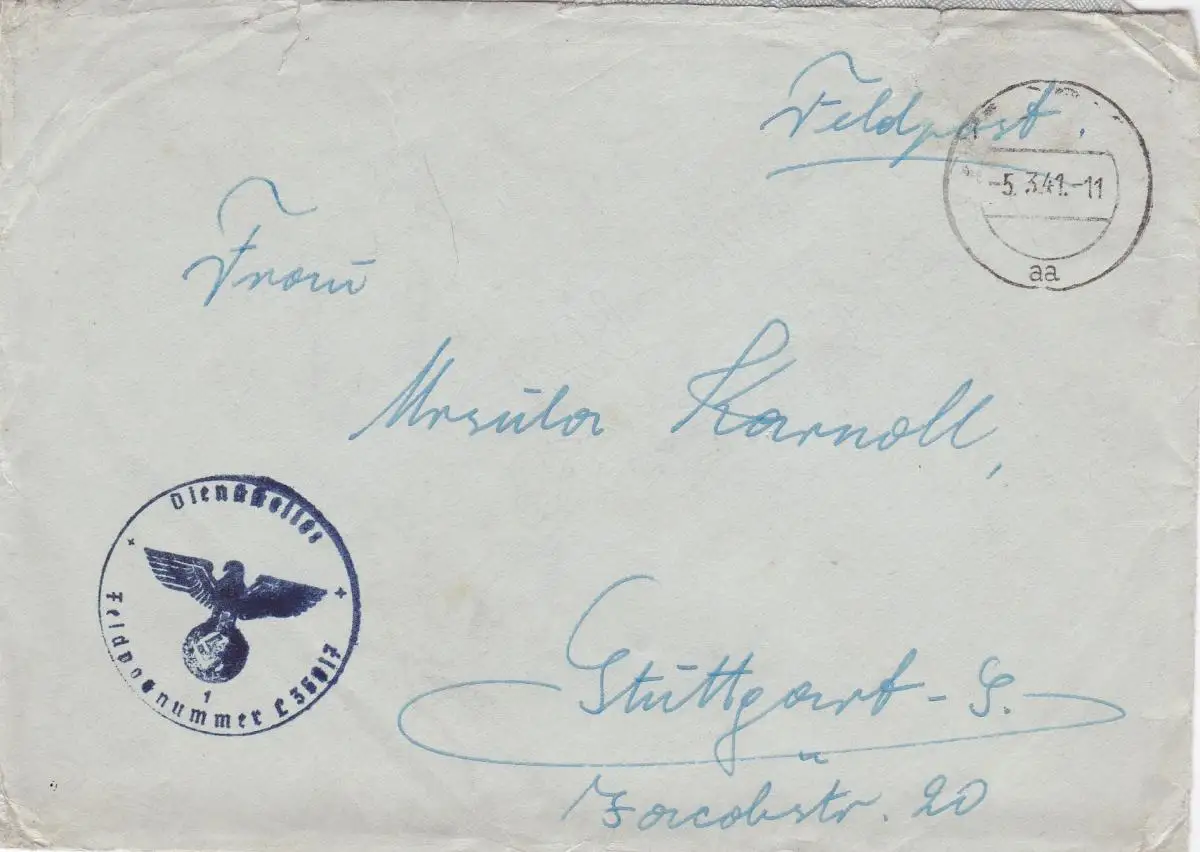 Feldpost.
-5. 3.41.-11
aa
Frau
Ursula Karnoll,
Dienststelle
Feldpostnummer L 35017
1
Stuttgart-S.
Jacobstr. 20